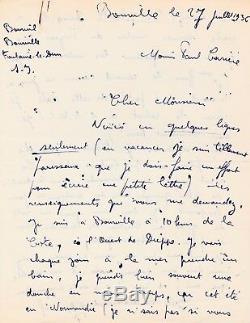 Bourville le 27 juillet 1936
Bourville
Fontaine-le-Dun
S. I.
Monsieur Paul Carrière
"Cher Monsieur
Voici en quelques lignes
seulement (en vacances je suis tellement
paresseux que je dois faire un effort
pour écrire une petite lettre) les
renseignements que vous me demandez.
Je suis à Bourville à 10 kms de la
Côte, à l'Ouest de Dieppe. Je vais
chaque jour à la mer prendre un
bain, je prends bien souvent une
douche en même temps, car cet été
en Normandie (je ne sais pas si vous